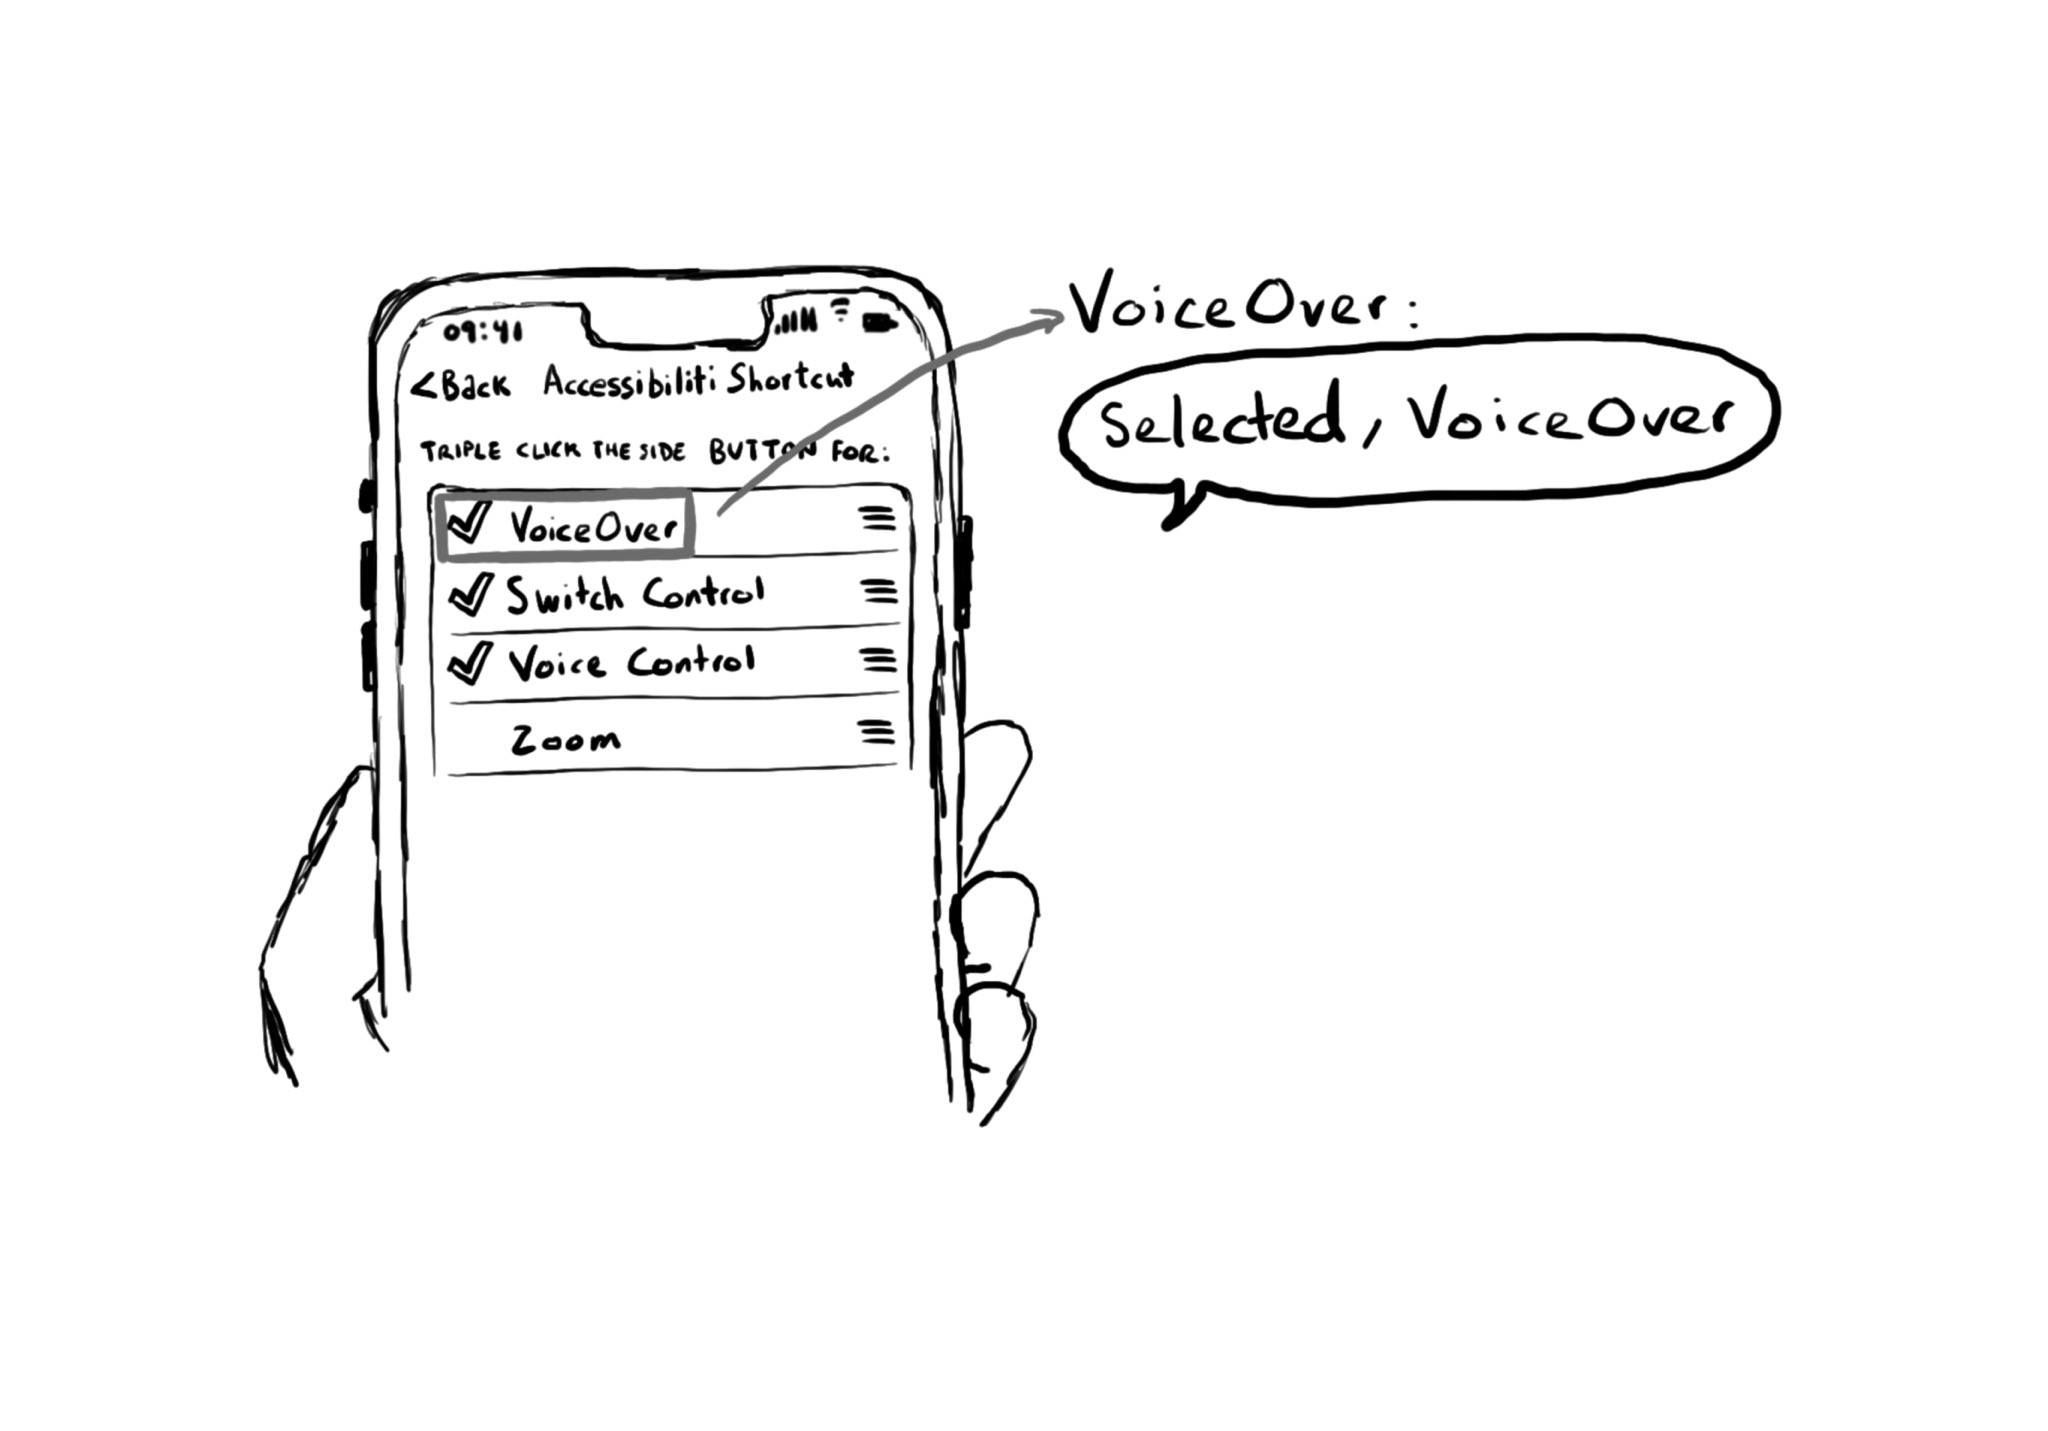 09:41
<Back Accessibiliti Shortcut
TRIPLE CLICK THE SIDE BUTTON FOR:
VoiceOver
Switch Control
Voice Control
Zoom
VoiceOver:
Selected, VoiceOver